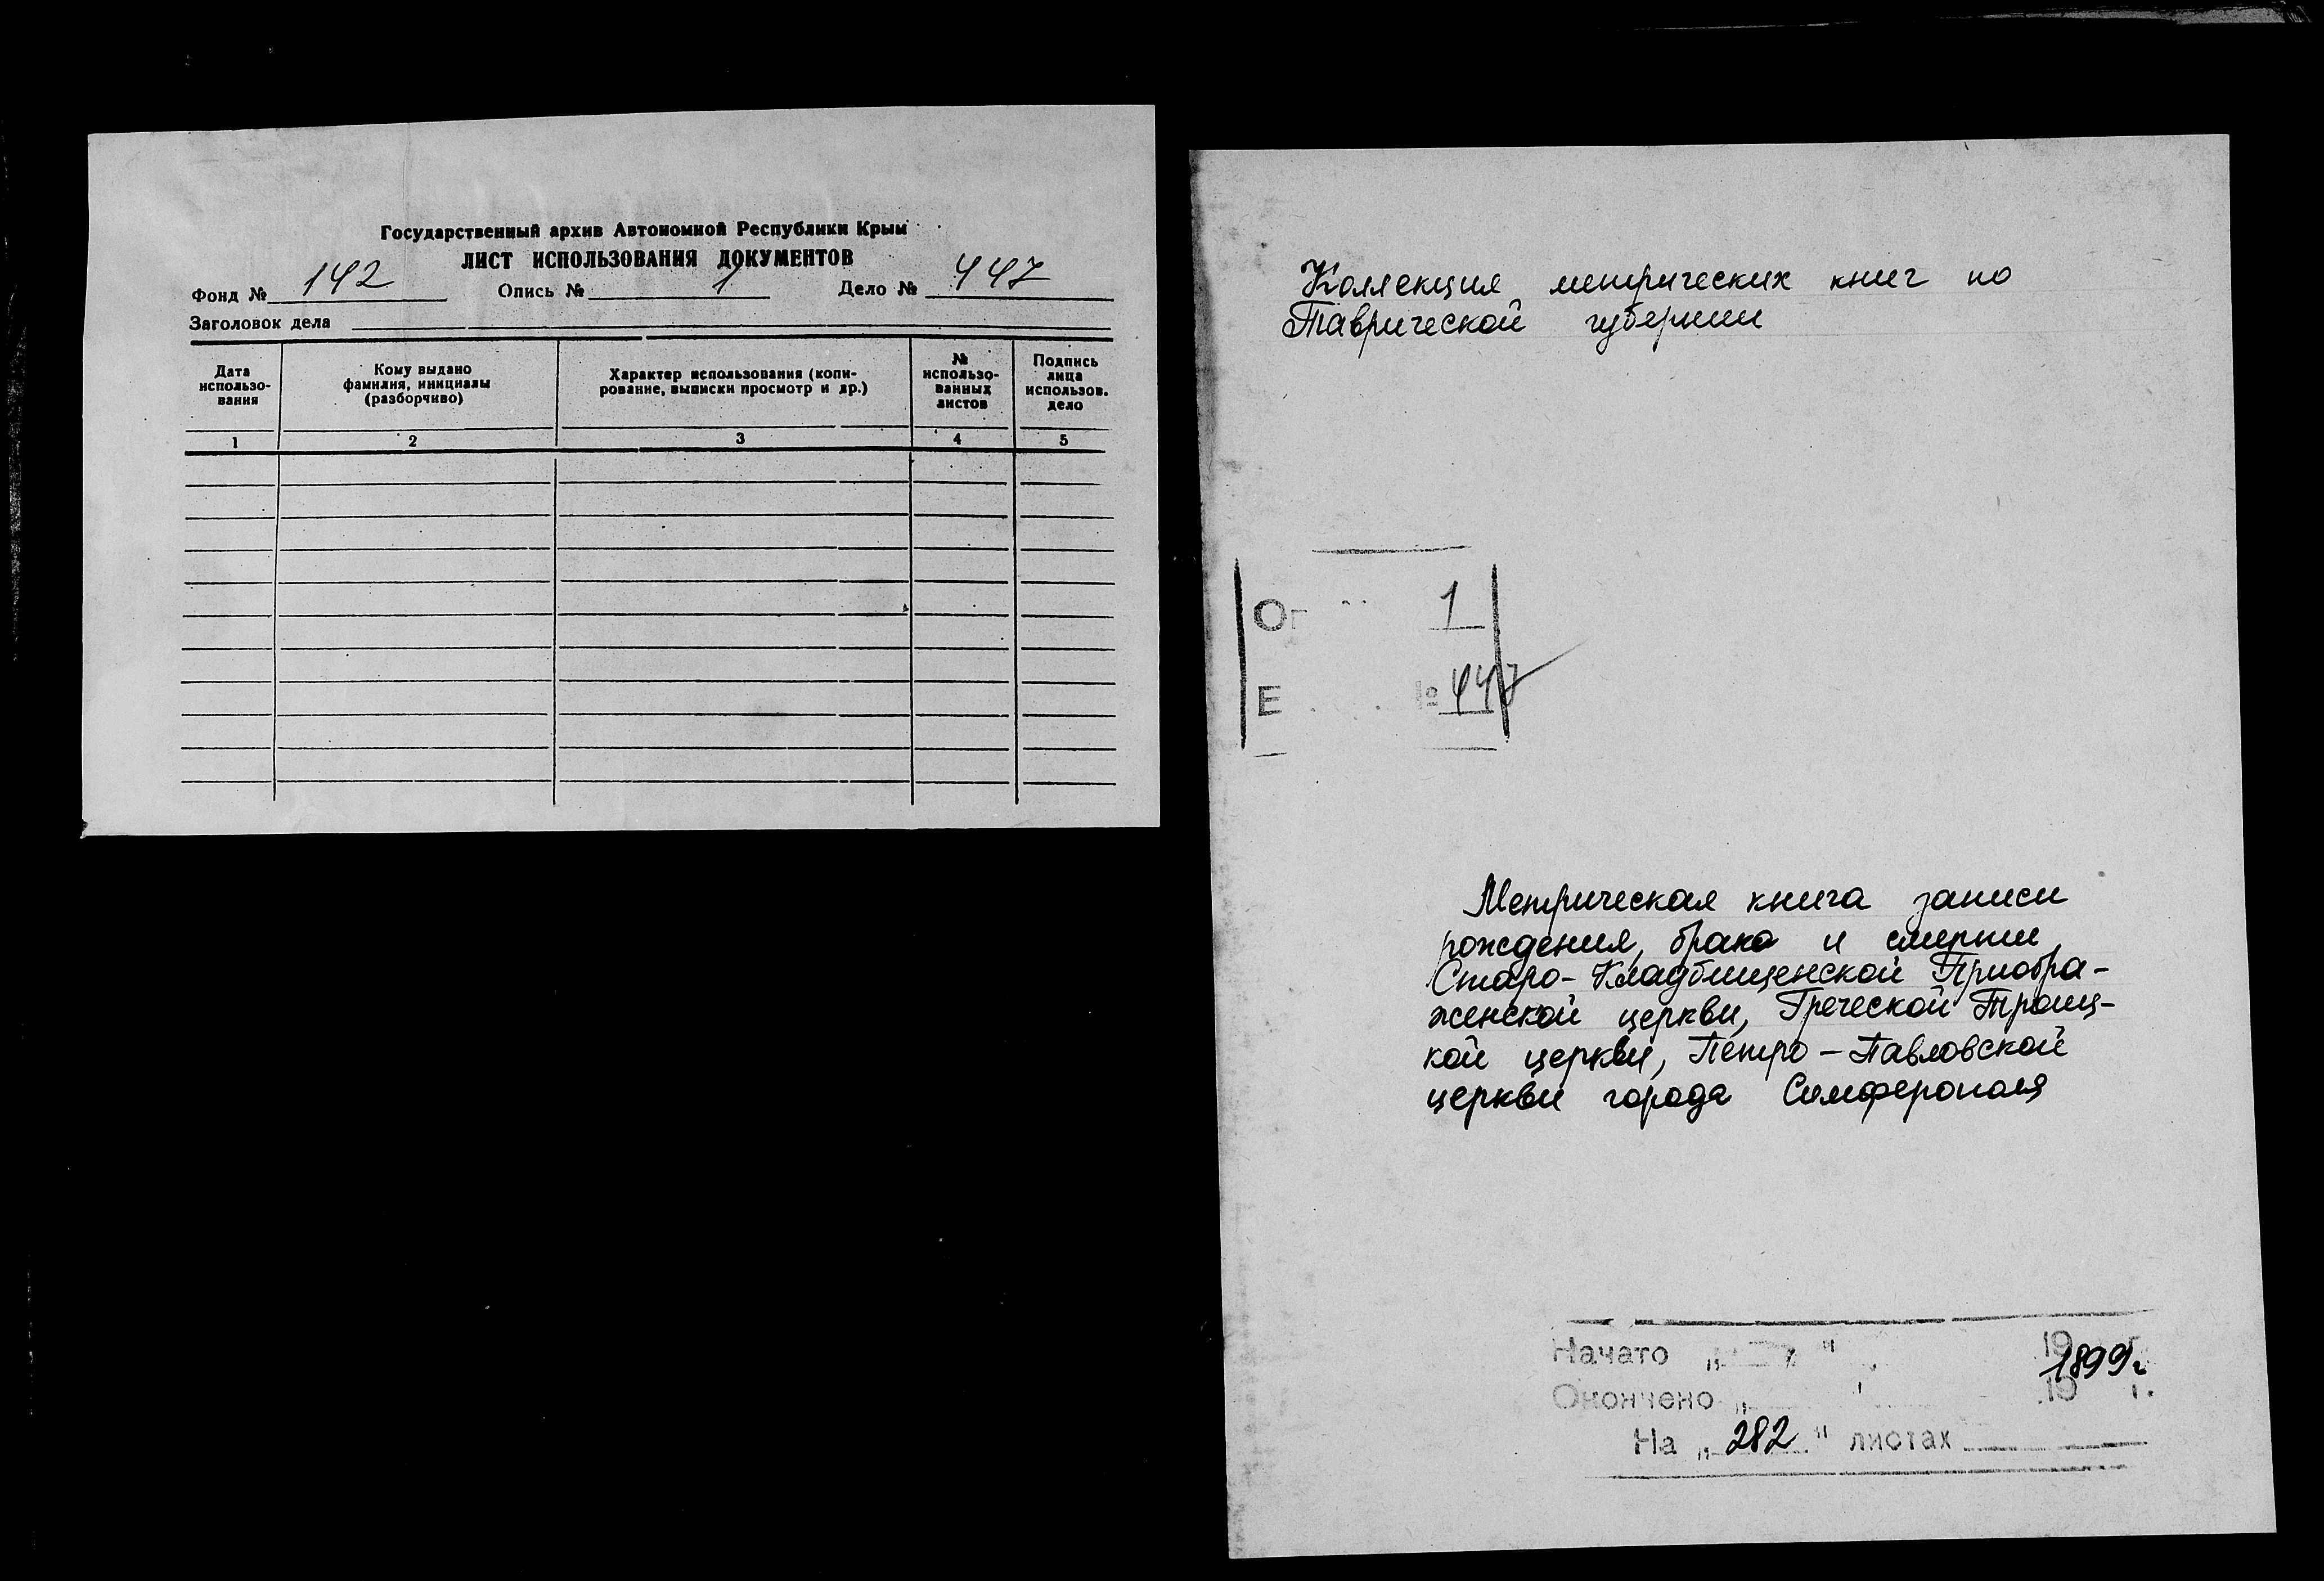 Государственный архив Автономной Республики Крым
ЛИСТ ИСПОЛЬЗОВАНИЯ ДОКУМЕНТОВ
Фонд № 142 Опись № 1 Дело № 447
Заголовок дела
Дата использо-вания
Кому выдано фамилия, инициалы (разборчиво)
Характер использования (копи-рование, выписки просмотр и др.)
№ использо-ванных листов
Подпись лица использов. дело
1 2 3 4 5
Коллекция метрических книг по
Таврической губернии
1
№ 447
Метрическая книга записи
рождения, брака и смерти
Старо-Кладбищенской Приобра-
женской церкви, Греческой Троиц-
кой церкви, Петро-Павловской
церкви города Симферополя
Начато „ " 19
1899г
Окончено „ " 19 г.
На „ 282 " листах